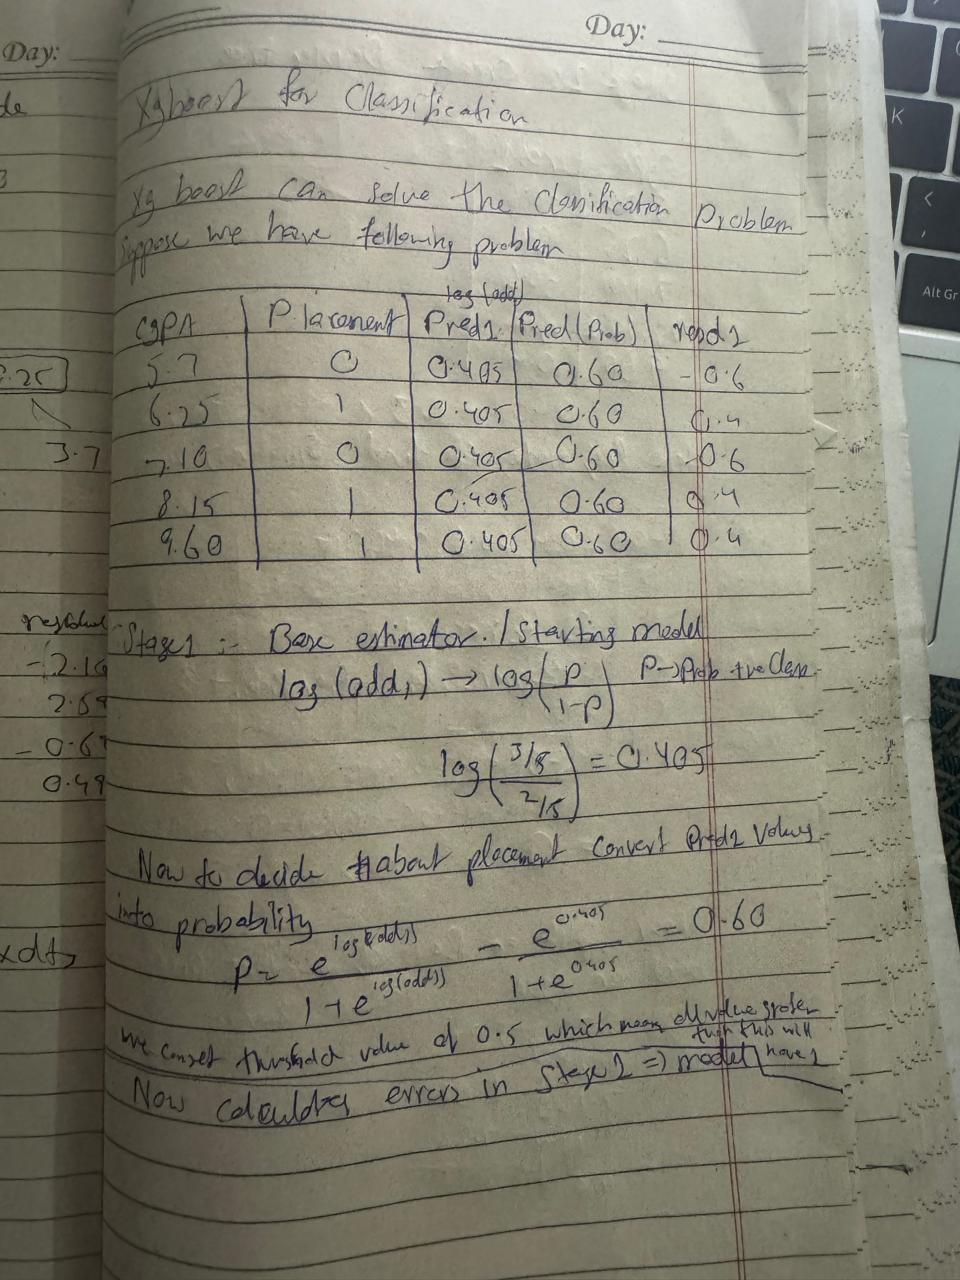 Day:
Day:
de
3
Xgboost for Classification
Xg boost can solve the Classification Problem
Suppose we have following problem
log(odd)
CGPA Placement Pred1 Pred(Prob) resd1
5.7 0 0.405 0.60 -0.6
6.25 1 0.405 0.60 0.4
7.10 0 0.405 0.60 -0.6
8.15 1 0.405 0.60 0.4
9.60 1 0.405 0.60 0.4
.25
3.7
Stage1 :- Base estimator / Starting model
log(odds) → log(p/1-p) P→Prob +ve Class
log((3/5)/(2/5)) = 0.405
-2.16
2.69
-0.6
0.49
Now to decide about placement convert Pred1 Values
into probability
P = e^log(odds) / 1+e^log(odds) = e^0.405 / 1+e^0.405 = 0.60
we can set threshold value of 0.5 which mean all value greater
than this will
have 1
Now calculates errors in Stage1 => model